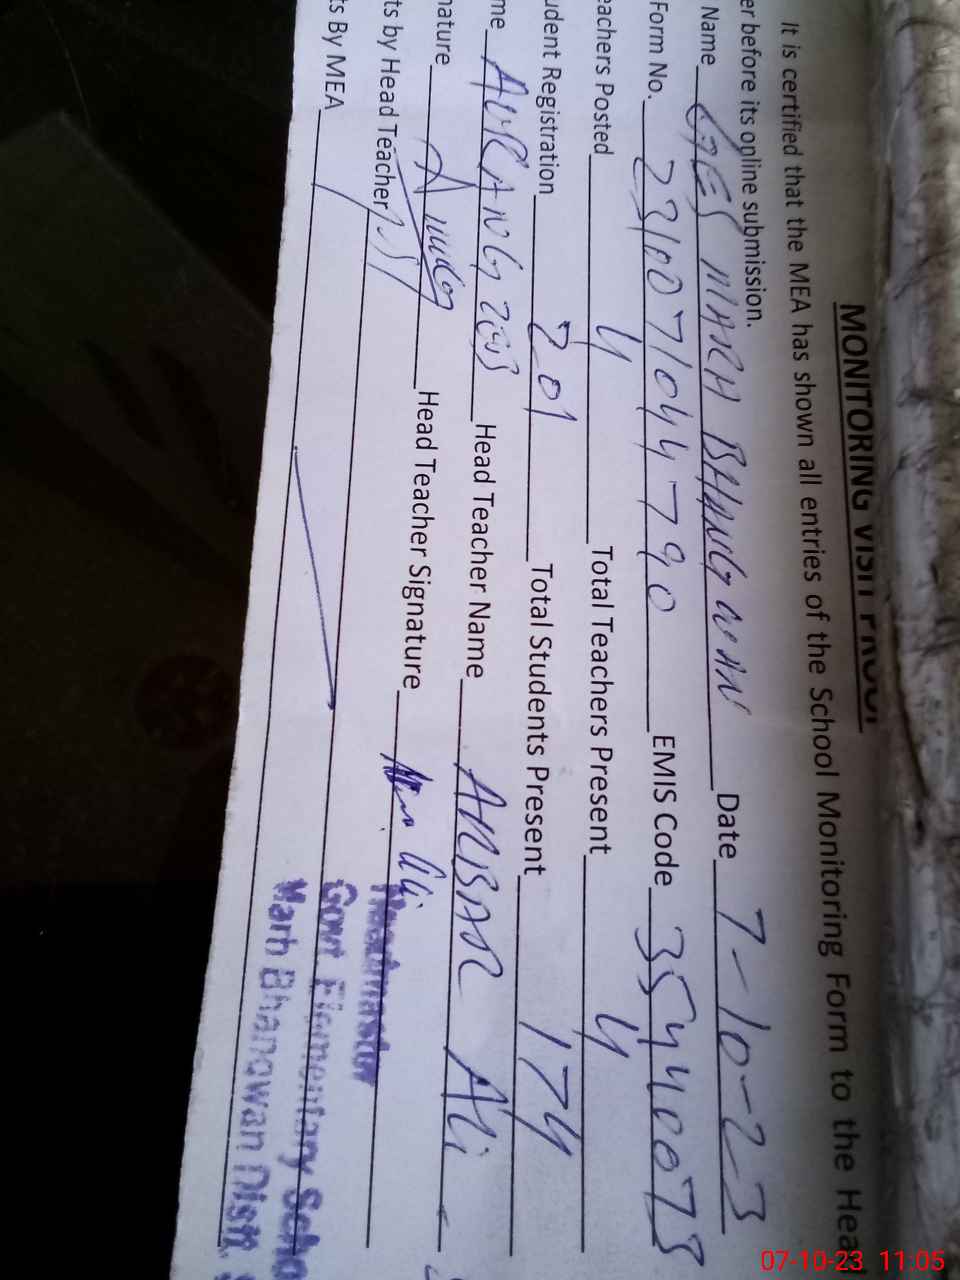 MONITORING VISIT PROOF
It is certified that the MEA has shown all entries of the School Monitoring Form to the Hea
er before its online submission.
Name GES MARH BHANGWAN Date 7-10-23
Form No. 2310071044790 EMIS Code 35440073
eachers Posted 4 Total Teachers Present 4
udent Registration 201 Total Students Present 174
me Head Teacher Name AKBAR Ali
nature Head Teacher Signature
ts by Head Teacher
ts By MEA
Headmaster
Govt. Elementary Scho
Marh Bhangwan Distt.
07-10-23 11:05